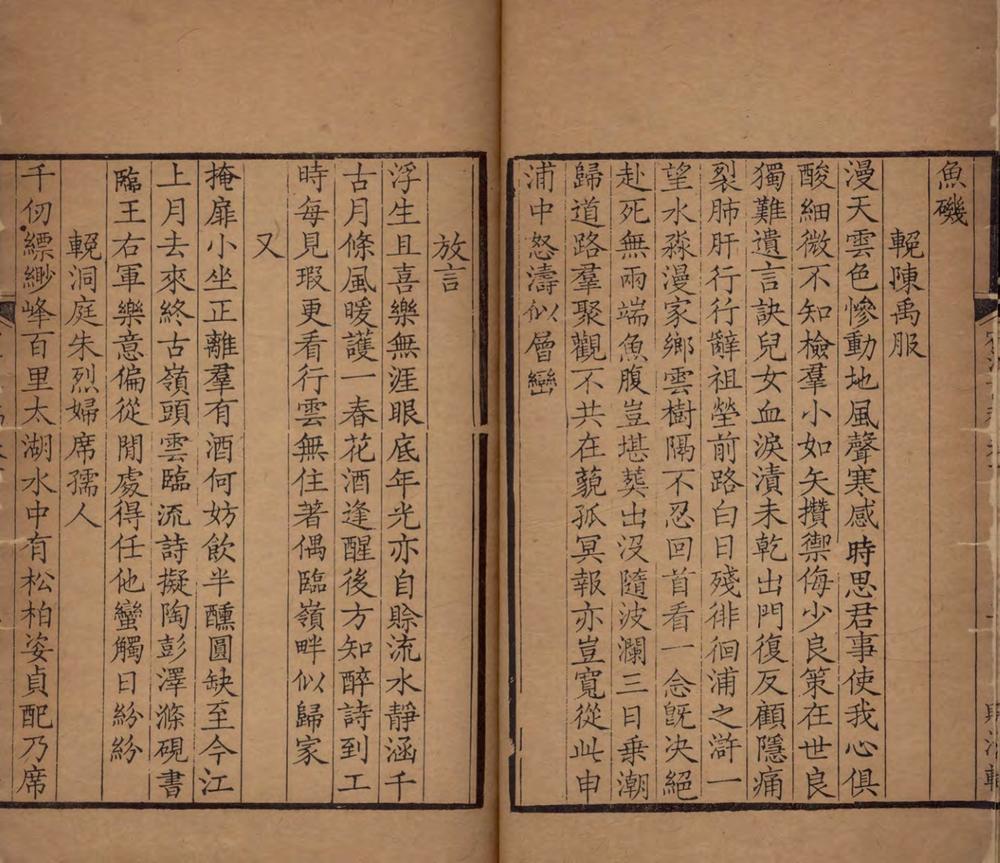 魚磯
輓陳禹服
漫天雲色慘動地風聲寒感時思君事使我心俱
酸細微不知檢羣小如矢攢禦侮少良策在世良
獨難遺言訣兒女血淚漬未乾出門復反顧隱痛
裂肺肝行行辭祖塋前路白日殘徘徊浦之滸一
望水淼漫家鄉雲樹隔不忍回首看一念旣决絕
赴死無兩端魚腹豈堪葬出沒隨波瀾三日乗潮
歸道路羣聚觀不共在藐孤冥報亦豈寬從此申
浦中怒濤似層巒
放言
浮生且喜樂無涯眼底年光亦自賒流水靜涵千
古月條風暖護一春花酒逢醒後方知醉詩到工
時每見瑕更看行雲無住著偶臨嶺畔似歸家
又
掩扉小坐正離羣有酒何妨飲半醺圓缺至今江
上月去來終古嶺頭雲臨流詩擬陶彭澤滌硯書
臨王右軍樂意偏從閒處得任他蠻觸日紛紛
輓洞庭朱烈婦席孺人
千仞縹緲峰百里太湖水中有松柏姿貞配乃席